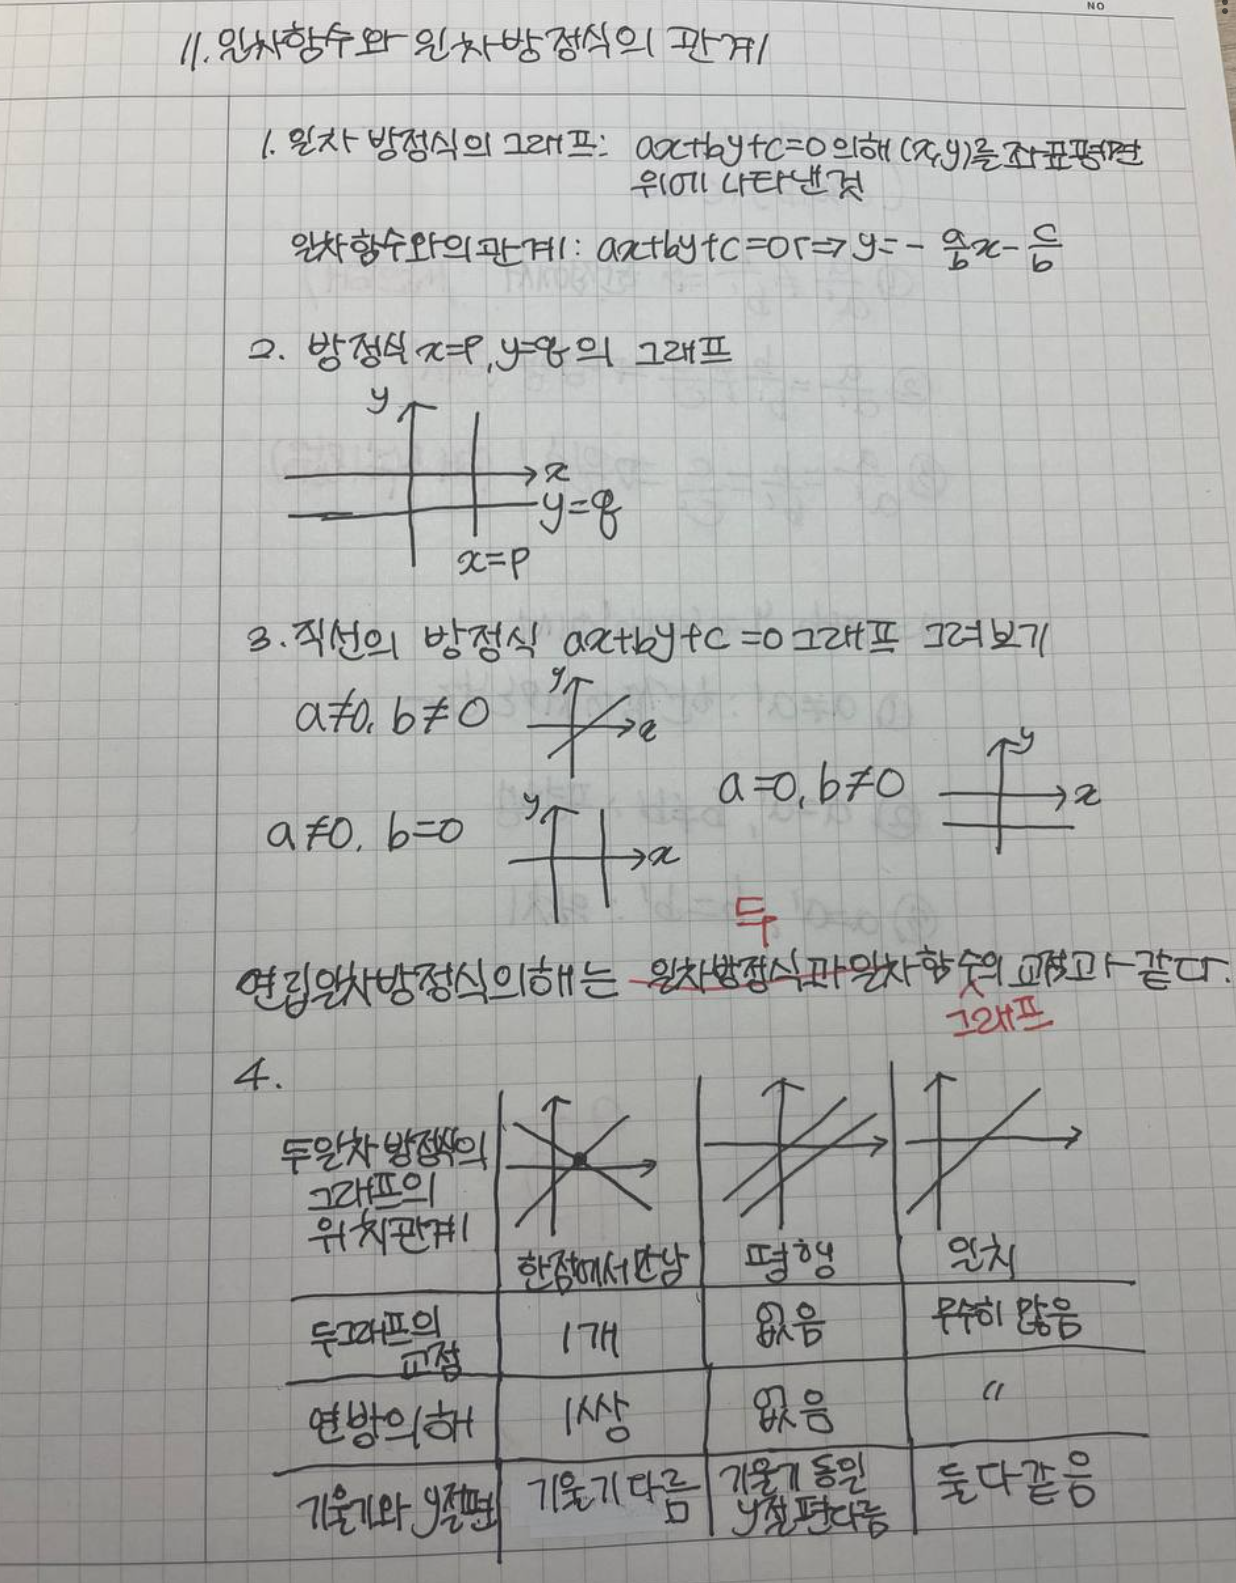 NO
11. 일차함수와 일차방정식의 관계
1. 일차 방정식의 그래프: ax+by+c=0의해 (x,y)를 좌표평면
위에 나타낸 것
일차함수와의관계: ax+by+c=0 r⇒ y= - a/b x - c/b
2. 방정식 x=p, y=q의 그래프
y
x
y=q
x=p
3. 직선의 방정식 ax+by+c=0 그래프 그려보기
a≠0, b≠0
y
x
a=0, b≠0
y
x
a≠0, b=0
y
x
두
연립일차방정식의해는 일차방정식과 일차함수의 교점과 같다.
그래프
4.
두일차 방정식의
그래프의
위치관계
한점에서 만남
평행
일치
두그래프의
교점
1개
없음
무수히 많음
연방의해
1쌍
없음
〃
기울기와 y절편
기울기 다름
기울기 동일
y절편다름
둘다 같음